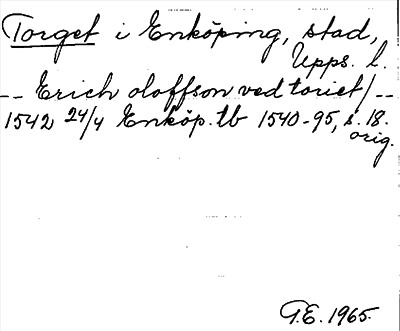 Torget i Enköping, stad,
Upps. l.
-- Erich oloffson ved toriet/--
1542 24/4 Enköp. tb 1540-95, s. 18.
orig.
G.E. 1965.